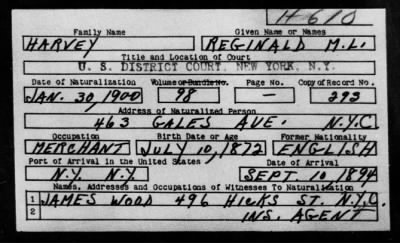 H610
Family Name Given Name or Names
HARVEY REGINALD M.L.
Title and Location of Court
U. S. DISTRICT COURT, NEW YORK, N.Y.
Date of Naturalization Volume or Bundle No. Page No. Copy of Record No.
JAN. 30, 1900 98 — 293
Address of Naturalized Person
463 GALES AVE. N.Y.C.
Occupation Birth Date or Age Former Nationality
MERCHANT JULY 10, 1872 ENGLISH
Port of Arrival in the United States Date of Arrival
N.Y. N.Y. SEPT. 10, 1894
Names, Addresses and Occupations of Witnesses To Naturalization
1 JAMES WOOD 496 HICKS ST. N.Y.C.
2 INS. AGENT